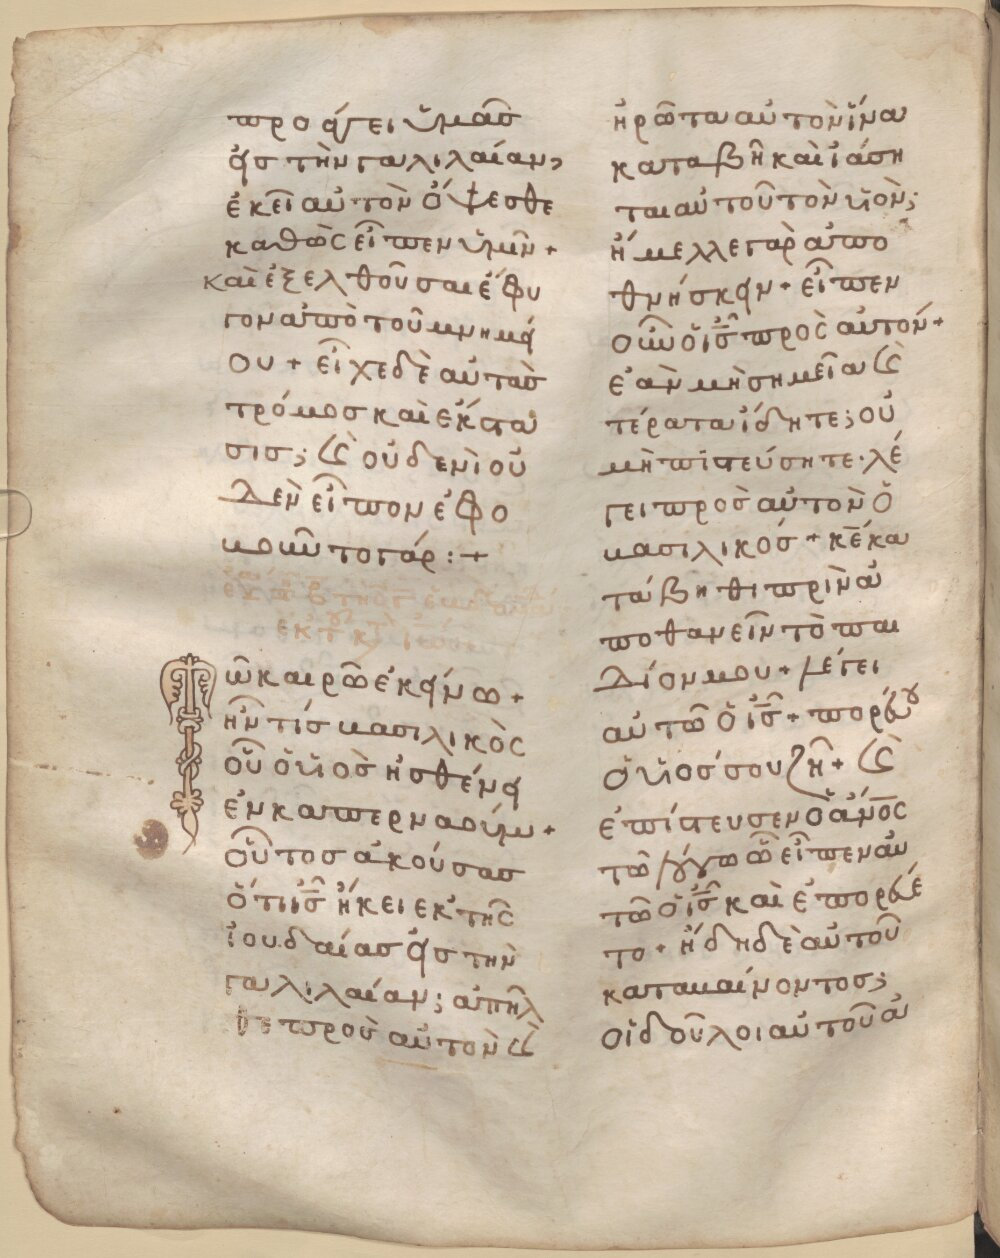 προάγει ὑμᾶς
εἰς τὴν γαλιλαίαν,
ἐκεῖ αὐτὸν ὄψεσθε
καθὼς εἶπεν ὑμῖν +
καὶ ἐξελθοῦσαι ἔφυ
γον ἀπὸ τοῦ μνημεί
ου + εἶχε δὲ αὐτὰς
τρόμος καὶ ἔκστα
σις; καὶ οὐδενὶ οὐ
δὲν εἶπον ἐφο
βοῦντο γάρ : +
Τῶ καιρῶ ἐκείνω +
ἦν τίς βασιλικὸς
οὗ ὁ υἱὸς ἠσθένει
ἐν καπερναούμ +
οὗτος ἀκούσας
ὅτι ις ἥκει ἐκ τῆς
ἰουδαίας εἰς τὴν
γαλιλαίαν; ἀπῆλ
θε προς αὐτὸν καὶ
ἠρῶτα αὐτὸν ἵνα
καταβῆ καὶ ἰάση
ται αὐτοῦ τὸν υἱόν;
ἤμελλε γὰρ ἀπο
θνήσκειν + εἶπεν
οὖν ὁ ις πρὸς αὐτόν +
ἐὰν μὴ σημεῖα καὶ
τέρατα ἴδητε; οὐ
μὴ πιστεύσητε · λέ
γει προς αὐτὸν ὁ
βασιλικός + κε κα
τάβηθι πρὶν ἀ
ποθανεῖν τὸ παι
δίον μου + λέγει
αὐτῶ ὁ ις + πορεύου
ὁ υἱός σου ζῆ + καὶ
ἐπίστευσεν ὁ ἀνος
τῶ λόγω ὧ εἶπεν αὐ
τῶ ὁ ις καὶ ἐπορεύε
το + ἤδη δὲ αὐτοῦ
καταβαίνοντος;
οἱ δοῦλοι αὐτοῦ ἀ